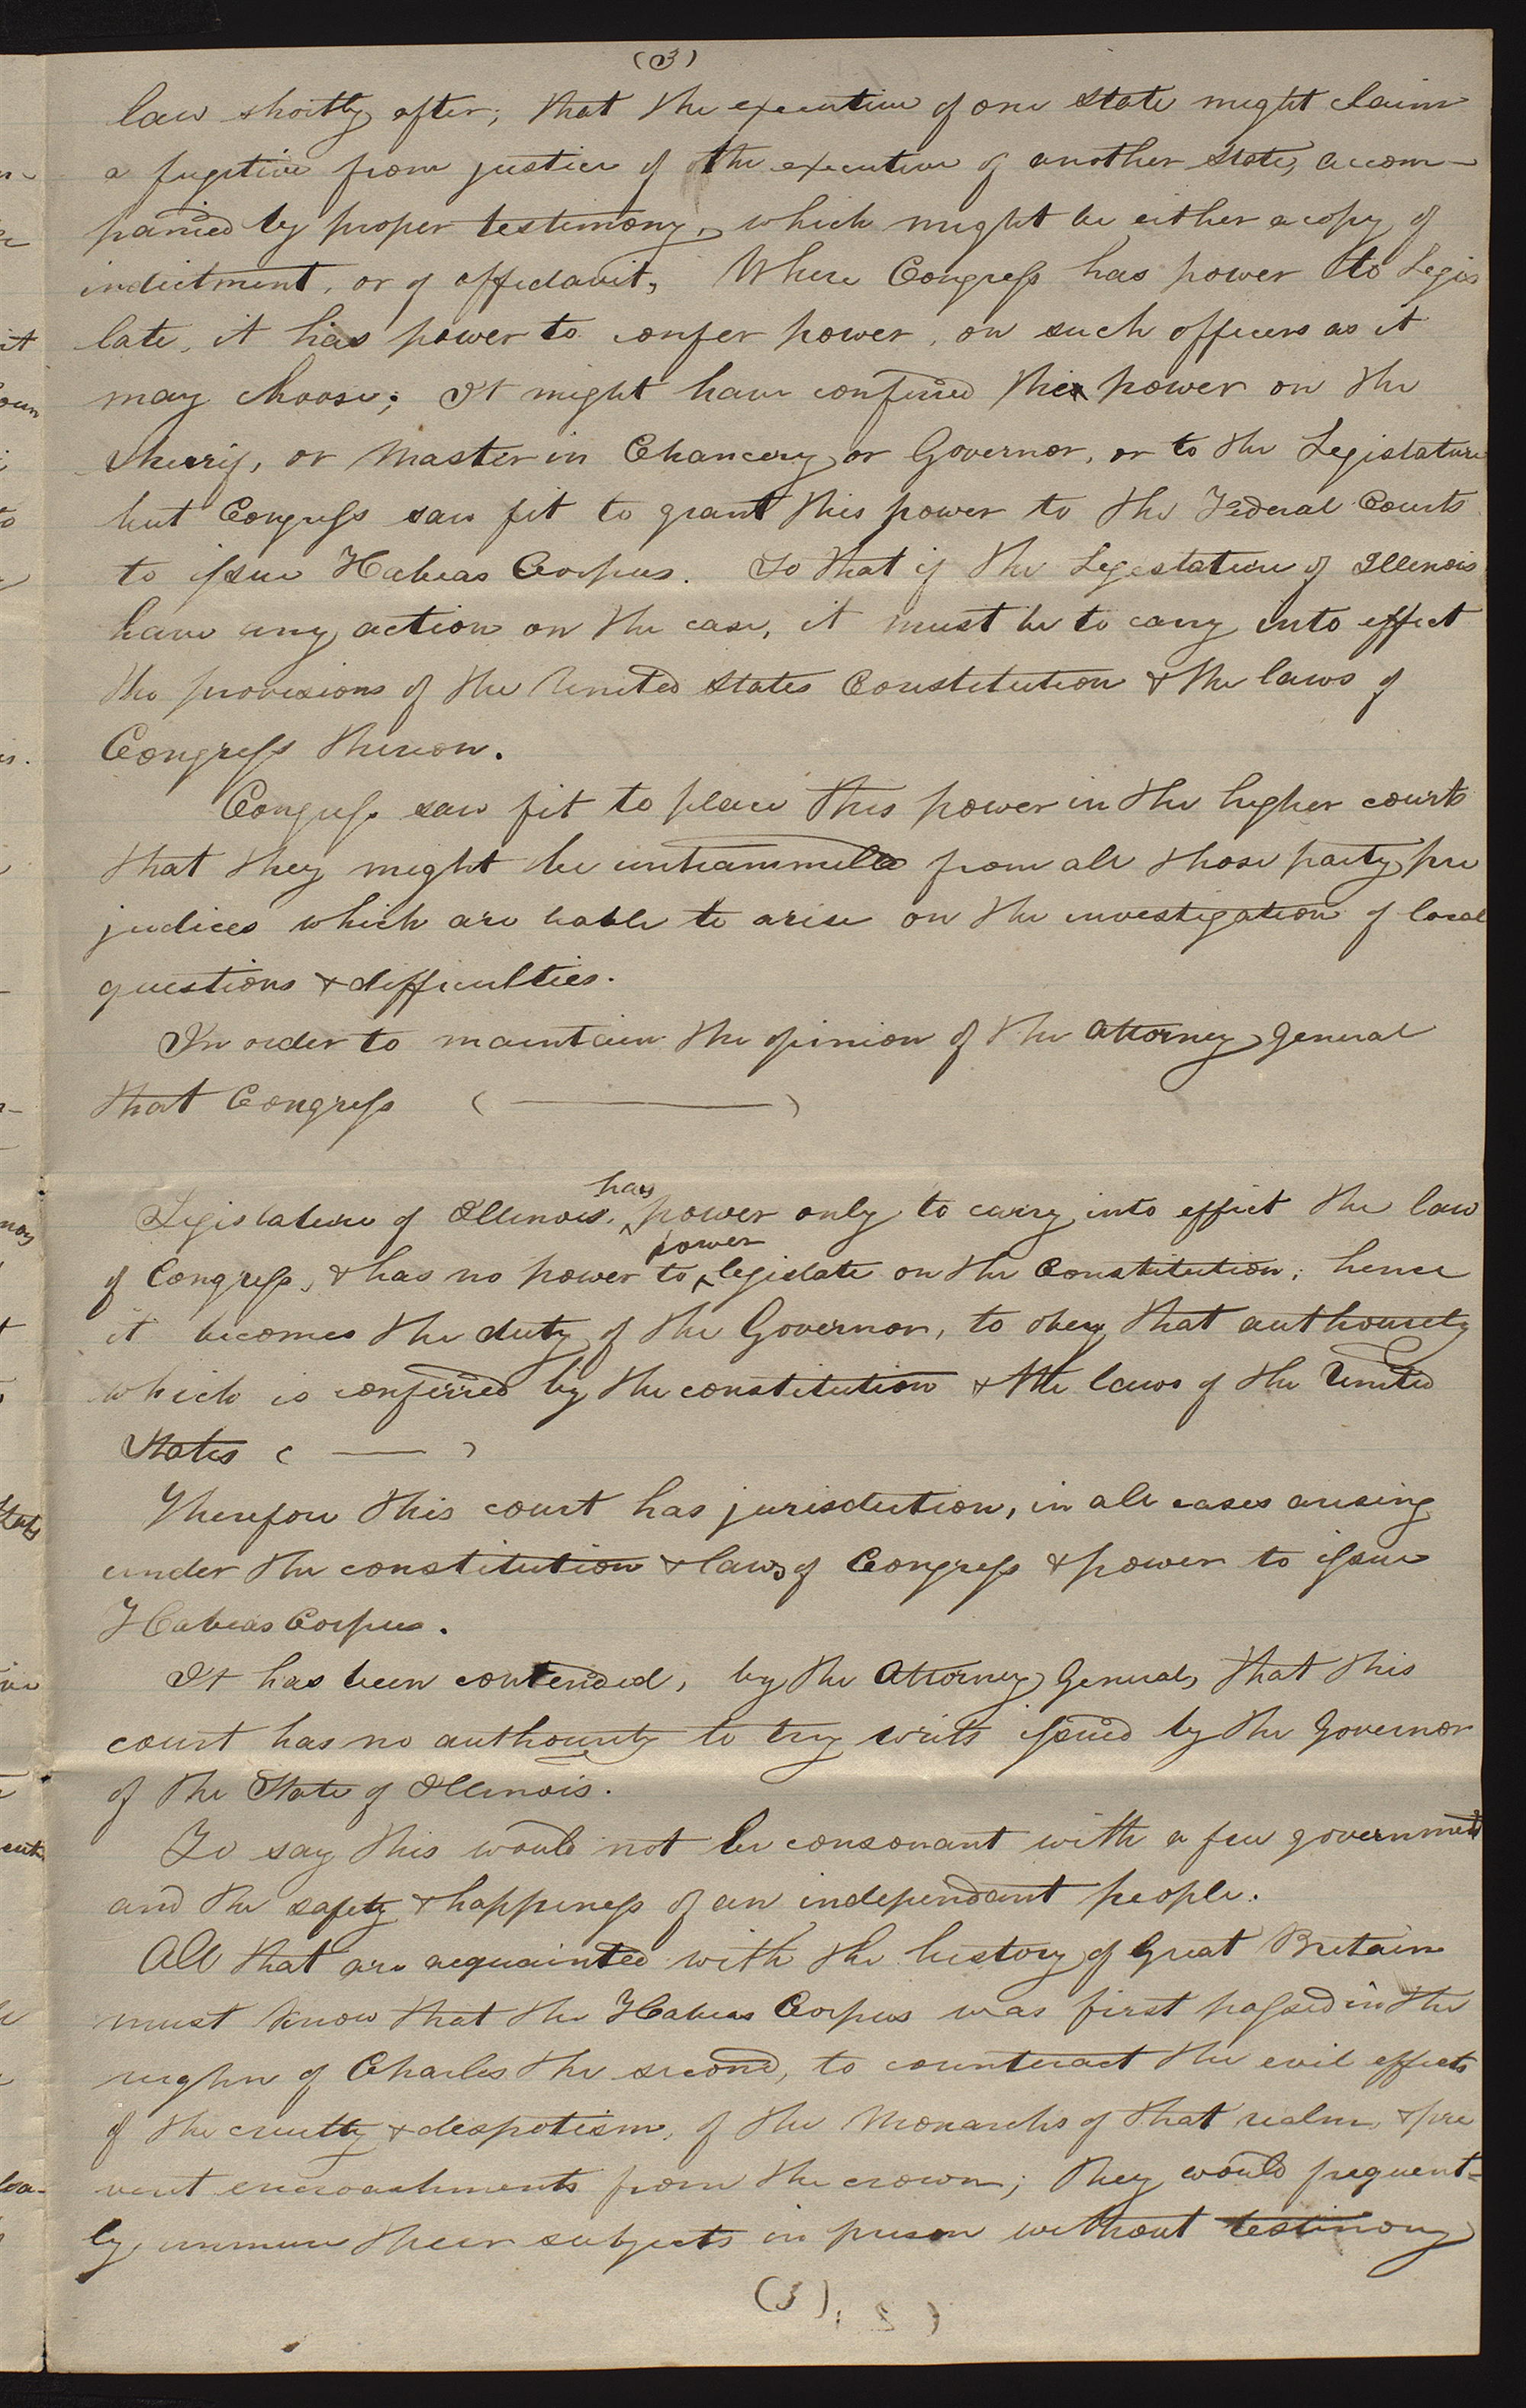 (3)
law shortly after; that the executive of one state might claim
a fugitive from justice of the executive of another state, accom-
panied by proper testimony, which might be either a copy of
indictment, or of affidavit, Where Congress has power to Legis
late, it has power to confer power, on such officers as it
may choose; It might have conferred this power on the
Sherrif, or Master in Chancery or Governor, or to the Legislature
but Congress saw fit to grant this power to the Federal Courts
to issue Habeas Corpus. So that if the Legislature of Illinois
have any action on the case, it must be to carry into effect
the provisions of the United States Constitution & the laws of
Congress thereon.
Congress saw fit to place this power in the higher courts
that they might be untrammelled from all those party pre
judices which are liable to arise on the investigation of local
questions & difficulties.
In order to maintain the opinion of the Attorney general
that Congress ( ——— )
has
Legislature of Illinois, power only to carry into effect the law
power
of Congress, & has no power to legislate on the Constitution; hence
it becomes the duty of the Governor, to obey that authourety
which is conferred by the constitution & the laws of the United
States ( — )
Therefore this court has jurisdiction, in all cases arising
under the constitution & laws of Congress & power to issue
Habeas Corpus.
It has been contended, by the Attorney General, that this
court has no authourity to try writs issued by the Governor
of the State of Illinois.
To say this would not be consonant with a free government
and the safety & happiness of an independant people.
All that are acquainted with the history of Great Britain
must know that the Habeas Corpus was first passed in the
reighn of Charles the second, to counteract the evil effects
of the cruelty & despotism, of the Monarchs of that realm, & pre
vent encroachments from the crown; they would frequent-
ly immure their subjects in prison without testimony
(3)